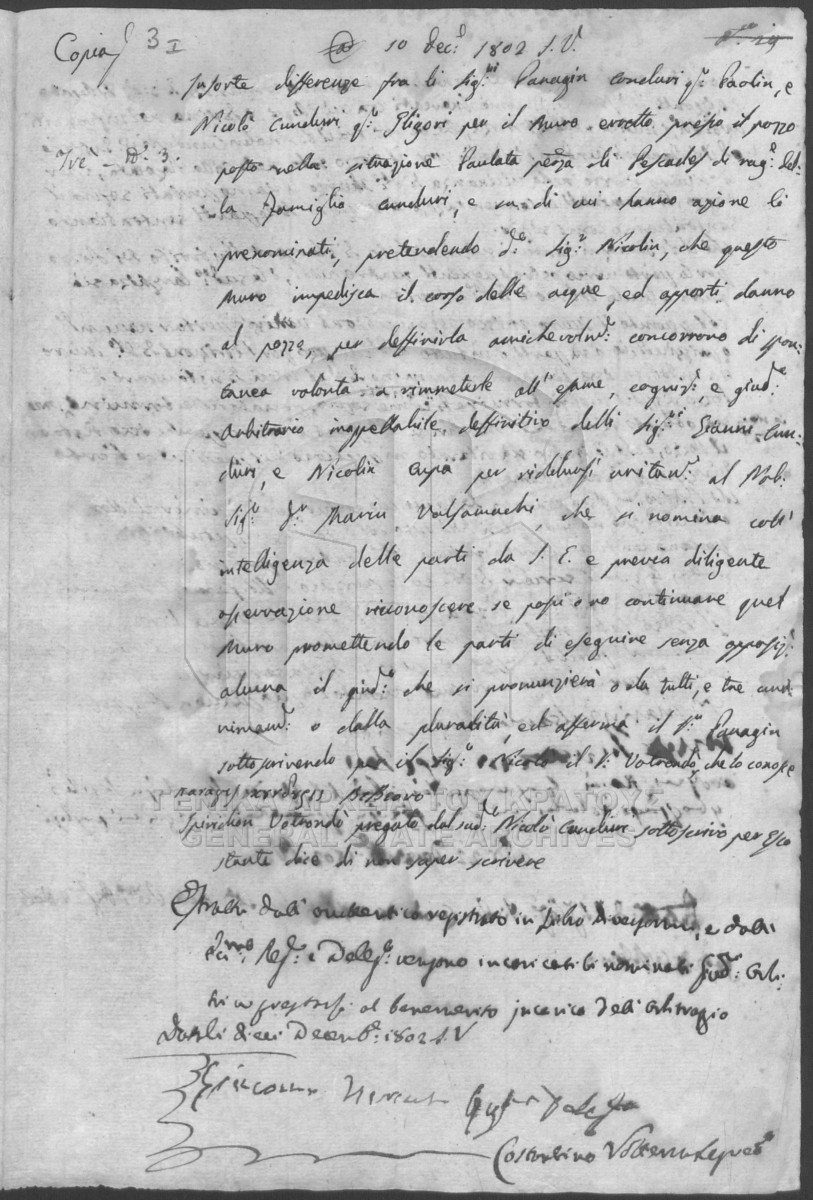 Copia 3 I
10 Dec.e 1802 S.V.
Insorte differenze fra li Sig.ri Panagin Conduri q.m Paolin, e
Nicolò Conduri q.m Gligori per il Muro eretto presso il pozzo
posto nella situazione Paulata di rag.e del-
la Famiglia Conduri, e su di cui hanno azione li
prenominati, pretendendo d.o Sig.r Nicolin, che questo
Muro impedisca il corso delle acque, ed apporti danno
al pozzo, per deffinirla amichevolm.e concorrono di spon-
tanea volontà a rimmeterle all' esame, cogniz.e, e giud.o
Arbitrario inappellabile, deffinitivo delli Sig.ri Gianni Con-
duri, e Nicolin per ridelursi unitam.e al Nob.
Sig.r D.r Marin Valsamachi, che si nomina coll'
intelligenza delle parti da S. E. e previa diligente
osservazione riconoscere se possi o no continuare quel
Muro promettendo le parti di eseguire senza opposiz.e
alcuna il giud.o che si pronunzierà o da tutti, e tre
o dalla pluralità, ed afferma il S.r Panagin
sottoscrivendo per il Sig.r Nicolò il S.r Votrondò, che lo conosce
παναγις κονδυρης βεβεονο
Spiridion Votrondò pregato dal sud.o Nicolò Conduri sottoscrivo per esso
stante dice di non saper scrivere
Estratta dall' autentico registrato in Libro, e dalli
Reg.e e Deleg.o vengono incaricati li nominati Giud.i Arbi-
tri a prestarsi al benemerito incarico dell' Arbitraggio
Dat. li dieci Decemb.e 1802 S.V
Giacomo
Costantino
ΓΕΝΙΚΑ ΑΡΧΕΙΑ ΤΟΥ ΚΡΑΤΟΥΣ
GENERAL STATE ARCHIVES